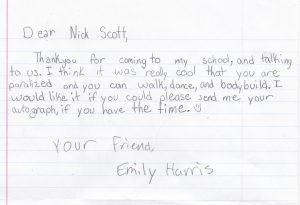 Dear Nick Scott,
Thankyou for coming to my school, and talking
to us. I think it was really cool that you are
paralized and you can walk, dance, and bodybuild. I
would like it if you could please send me your
autograph, if you have the time.
Your Friend,
Emily Harris